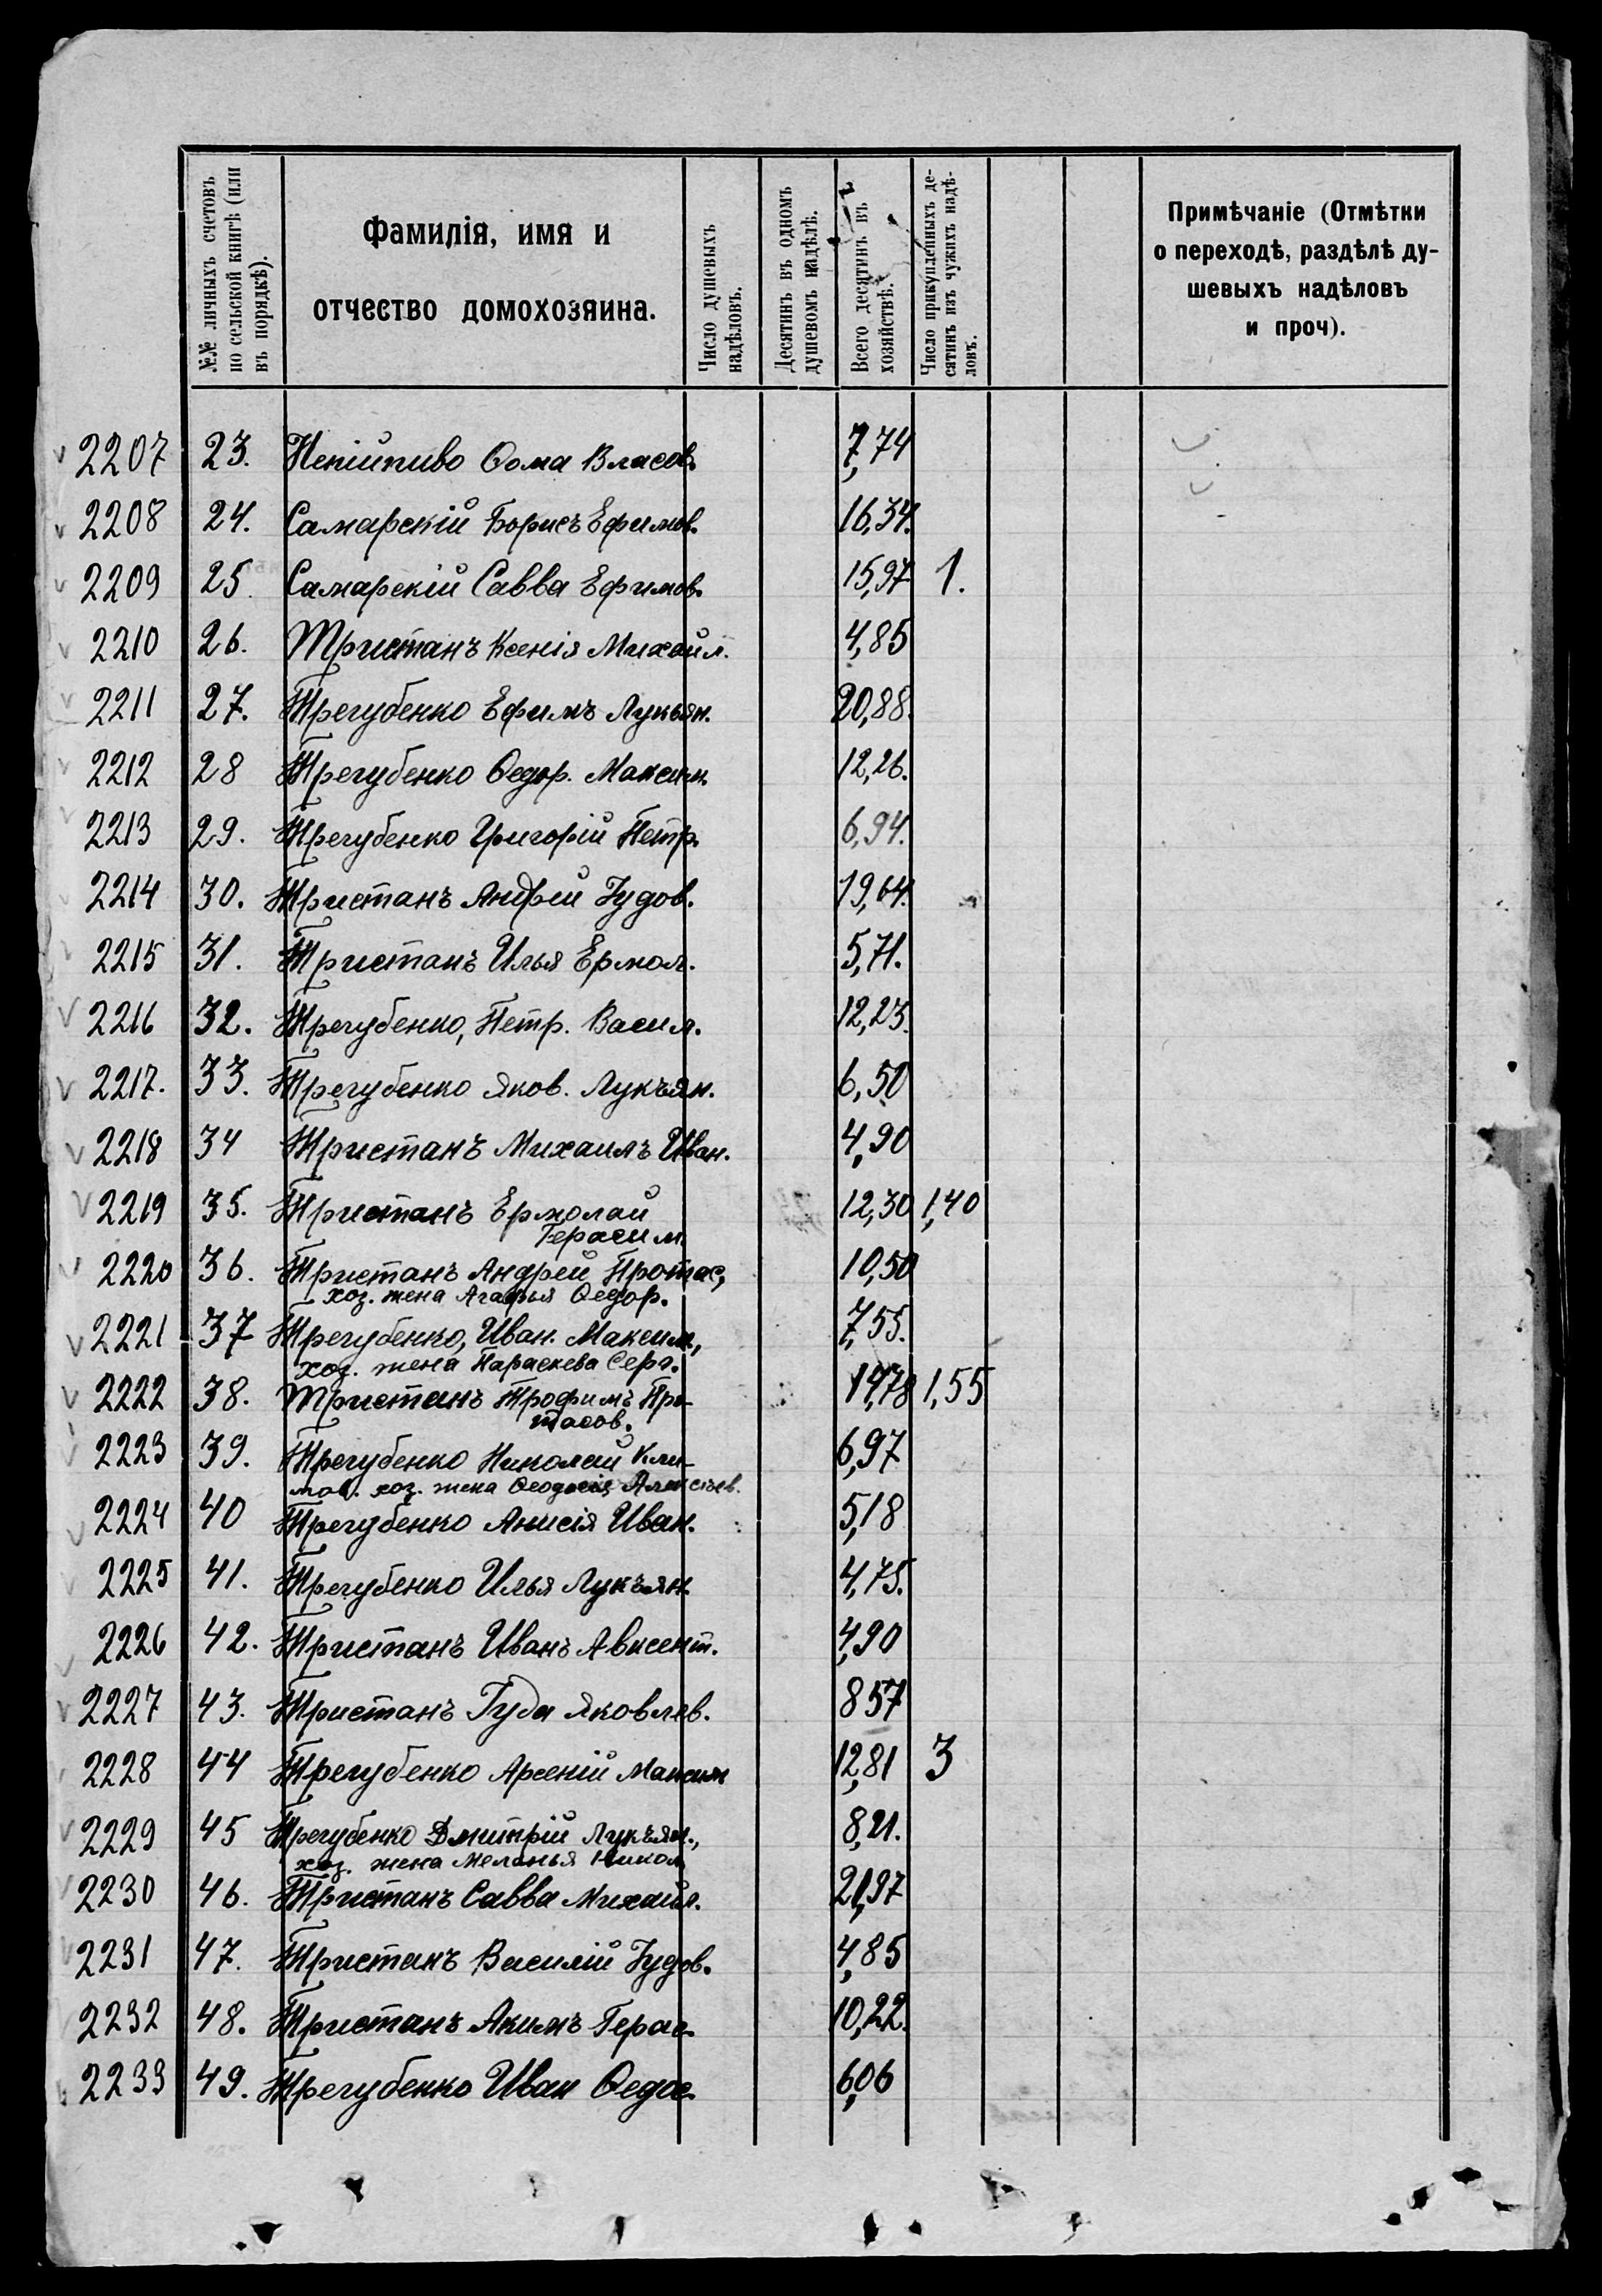 №№ личныхъ счетовъ
по сельской книгѣ (или
въ порядкѣ).
Фамилія, имя и
отчество домохозяина.
Число душевыхъ
надѣловъ.
Десятинъ въ одномъ
душевомъ надѣлѣ.
Всего десятинъ въ
хозяйствѣ.
Число прикупленныхъ де-
сятинъ изъ чужихъ надѣ-
ловъ.
Примѣчаніе (Отмѣтки
о переходѣ, раздѣлѣ ду-
шевыхъ надѣловъ
и проч).
2207 23. Непійпиво Ѳома Власов. 7,74
2208 24. Самарскій Борисъ Ефимов. 16,34.
2209 25 Самарскій Савва Ефимов. 15,97 1.
2210 26. Тристанъ Ксенія Михайл. 4,85
2211 27. Трегубенко Ефимъ Лукьян. 20,88.
2212 28 Трегубенко Ѳедор. Максим. 12,26.
2213 29. Трегубенко Григорій Петр. 6,94.
2214 30. Тристанъ Андрей Іудов. 19,64.
2215 31. Тристанъ Илья Ермол. 5,71.
2216 32. Трегубенко, Петр. Васил. 12,23.
2217. 33. Трегубенко Яков. Лукъян. 6,50
2218 34 Тристанъ Михаилъ Иван. 4,90
2219 35. Тристанъ Ермолай 12,30 1,40
Герасим.
2220 36. Тристанъ Андрей Протас, 10,50
хоз. жена Агафья Ѳедор.
2221 37 Трегубенко, Иван. Максим, 7,55.
хоз. жена Параскева Серг.
2222 38. Тристанъ Трофимъ Про- 1,55
тасов.
2223 39. Трегубенко Николай Кли- 6,97
мов. хоз. жена Ѳеодосія Алексѣев.
2224 40 Трегубенко Анисія Иван. 5,18
2225 41. Трегубенко Илья Лукъян. 4,75.
2226 42. Тристанъ Иванъ Авксент. 4,90
2227 43. Тристанъ Іуда Яковлев. 857
2228 44 Трегубенко Арсеній Максим 12,81 3
2229 45 Трегубенко Дмитрій Лукъян., 8,21.
хоз. жена Меланья Никол.
2230 46. Тристанъ Савва Михайл. 21,97
2231 47. Тристанъ Василій Іудов. 4,85
2232 48. Тристанъ Акимъ Герас. 10,22.
2233 49. Трегубенко Иван Ѳедос. 6,06